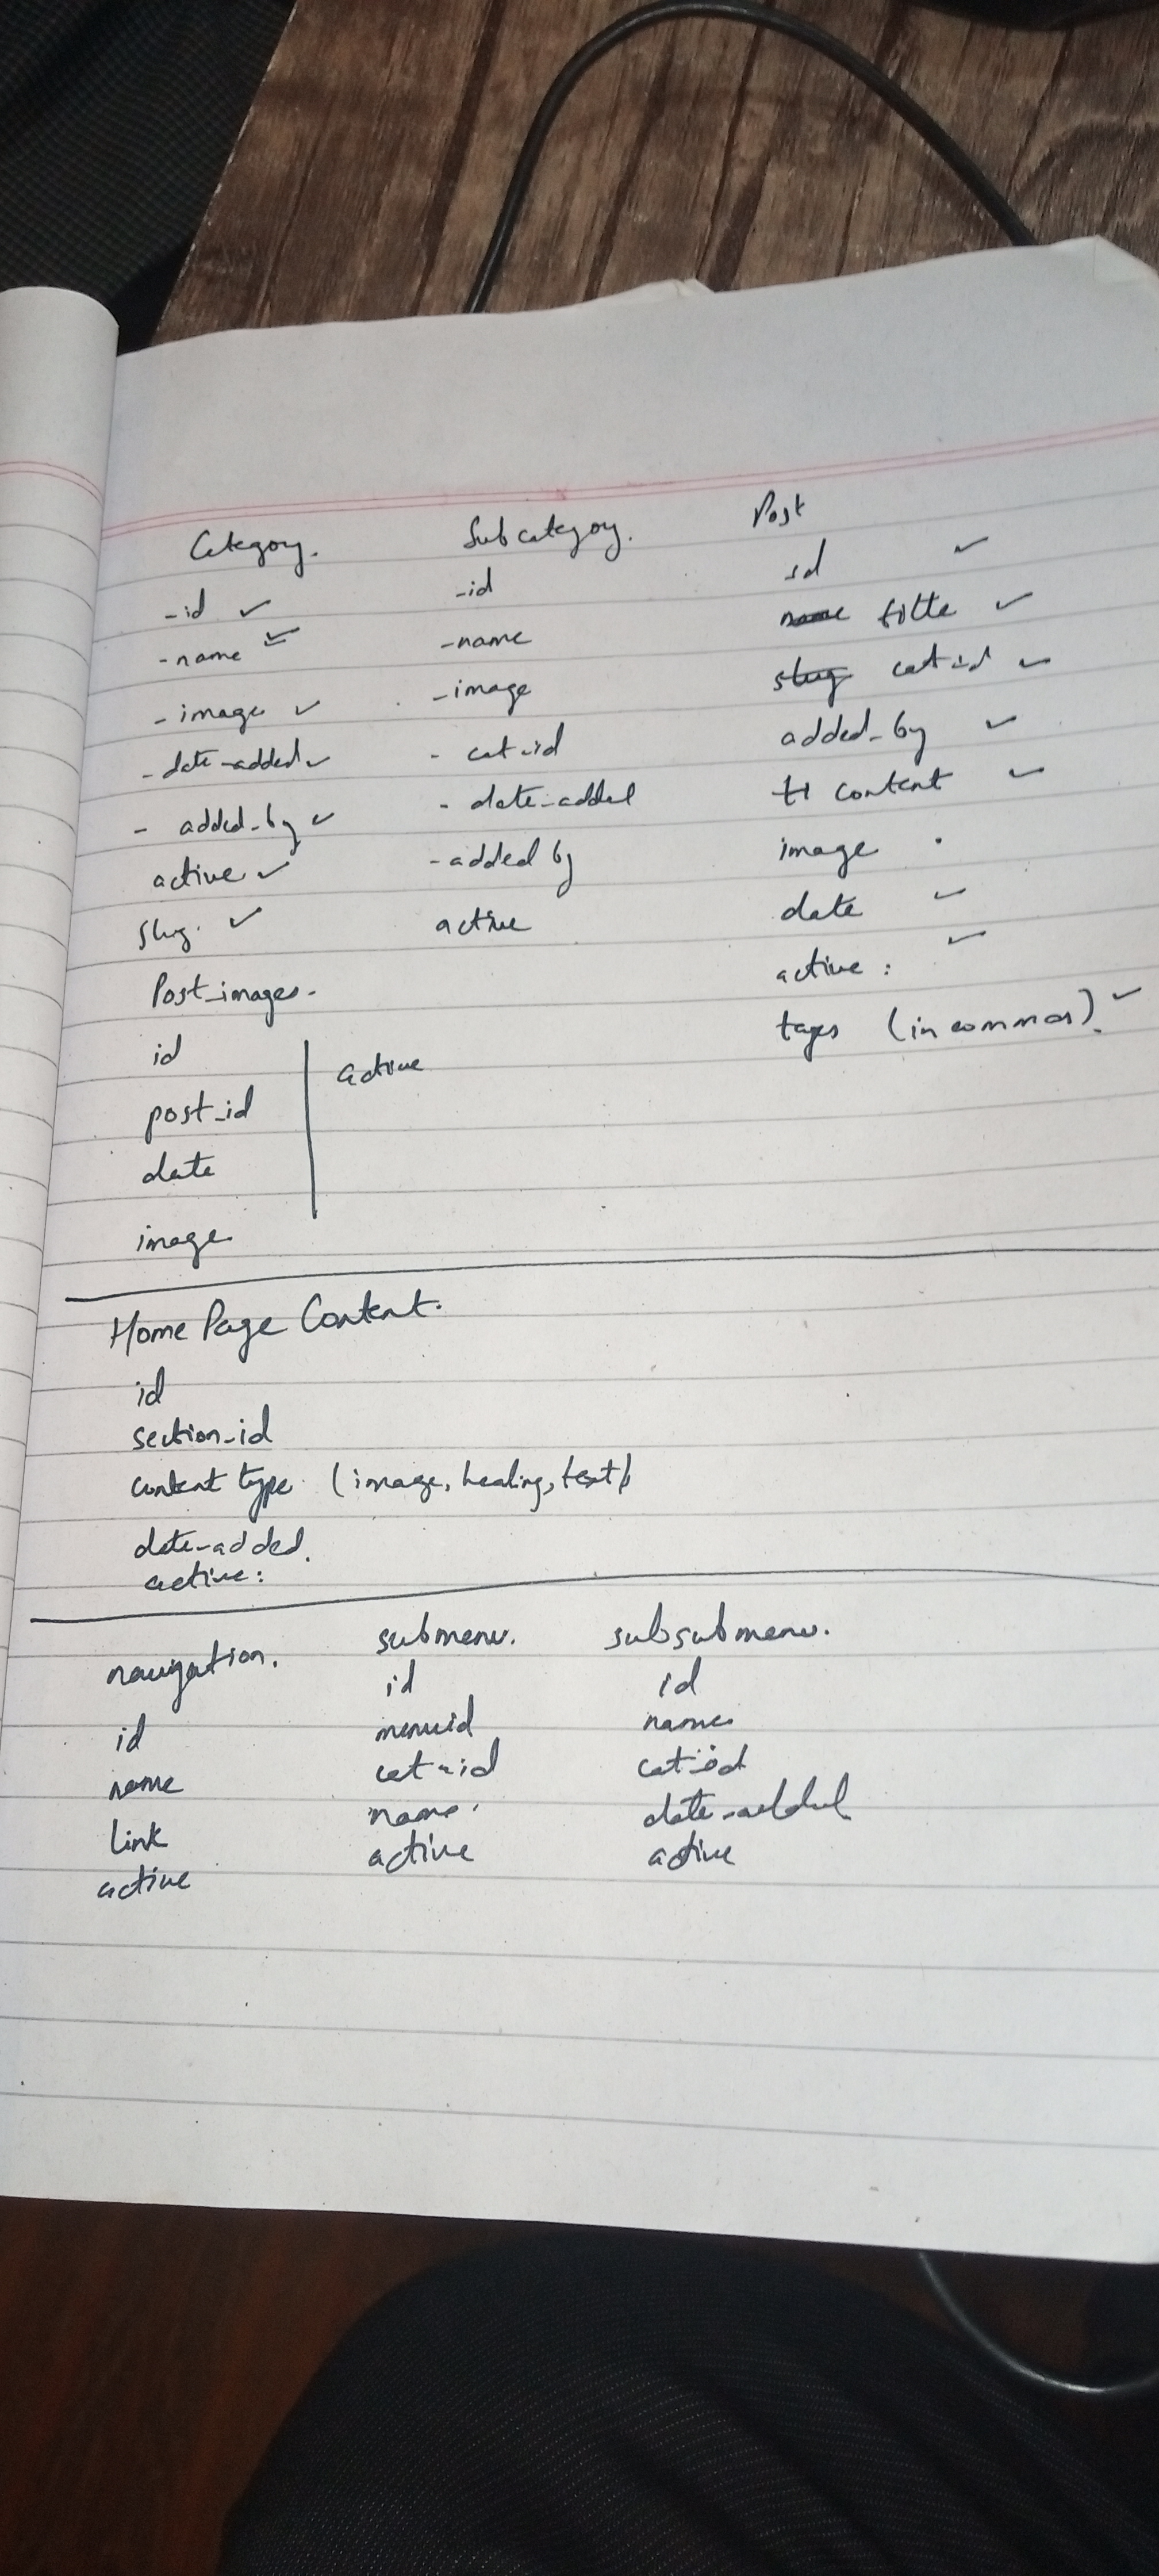 Category.
-id ✓
-name ✓
-image ✓
-date-added ✓
- added-by ✓
active ✓
slug. ✓
Subcategory.
-id
-name
-image
- cat-id
- date-added
-added by
active
Post
id ✓
name title ✓
slug cat-id ✓
added-by ✓
content ✓
image .
date ✓
active : ✓
tages (in commas). ✓
Post-images.
id
post-id
date
image
active
Home Page Content.
id
section-id
content type (image, heading, text)
date-added.
active:
navigation.
id
name
link
active
submenu.
id
menuid
cat-id
name.
active
subsubmenu.
id
name
cat-id
date-added
active